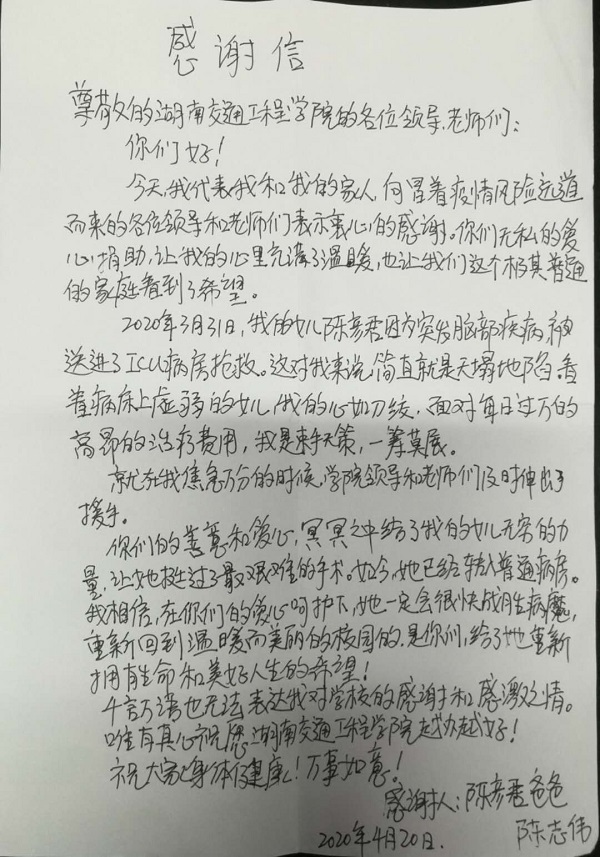 感谢信
尊敬的湖南交通工程学院的各位领导、老师们:
你们好!
今天,我代表我和我的家人,向冒着疫情风险远道
而来的各位领导和老师们表示衷心的感谢。你们无私的爱
心捐助,让我的心里充满了温暖,也让我们这个极其普通
的家庭看到了希望。
2020年3月31日,我的女儿陈彦君因为突发脑部疾病,被
送进了ICU病房抢救。这对我来说,简直就是天塌地陷。看
着病床上虚弱的女儿,我的心如刀绞,面对每日过万的
高昂的治疗费用,我是束手无策,一筹莫展。
就在我焦急万分的时候,学院领导和老师们及时伸出了
援手。
你们的善意和爱心,冥冥之中给了我的女儿无穷的力
量,让她挺过了最艰难的手术。如今,她已经转入普通病房。
我相信,在你们的爱心呵护下,她一定会很快战胜病魔,
重新回到温暖而美丽的校园的。是你们,给了她重新
拥有生命和美好人生的希望!
千言万语也无法表达我对学校的感谢和感激之情。
唯有真心祝愿湖南交通工程学院越办越好!
祝大家身体健康!万事如意!
感谢人:陈彦君爸爸
陈志伟
2020年4月20日.